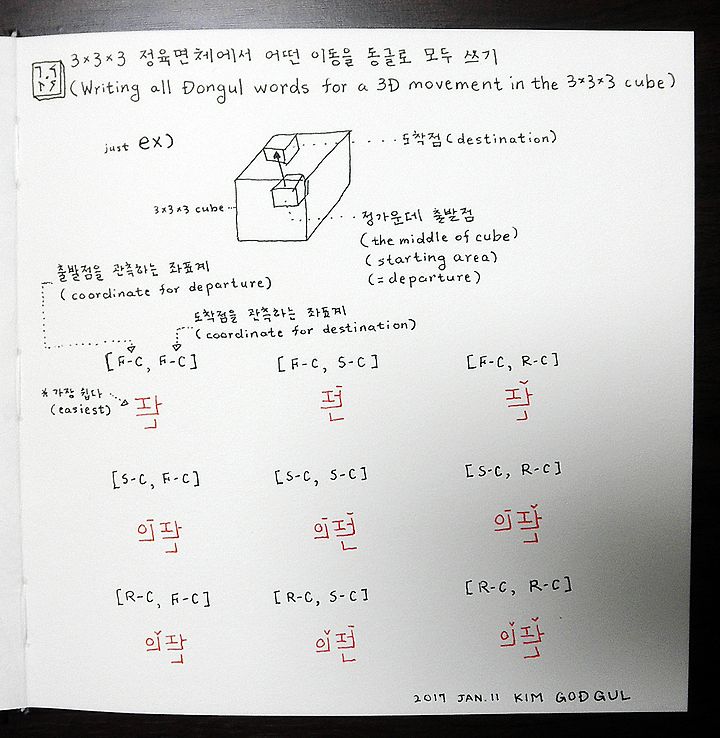 3×3×3 정육면체에서 어떤 이동을 동글로 모두 쓰기
(Writing all Đongul words for a 3D movement in the 3×3×3 cube)
just ex)
도착점(destination)
3×3×3 cube
정가운데 출발점
(the middle of cube)
(starting area)
(= departure)
출발점을 관측하는 좌표계
(coordinate for departure)
도착점을 관측하는 좌표계
(coordinate for destination)
[F-C, F-C] [F-C, S-C] [F-C, R-C]
* 가장 쉽다
(easiest)
[S-C, F-C] [S-C, S-C] [S-C, R-C]
[R-C, F-C] [R-C, S-C] [R-C, R-C]
2017 JAN. 11 KIM GOĐGUL